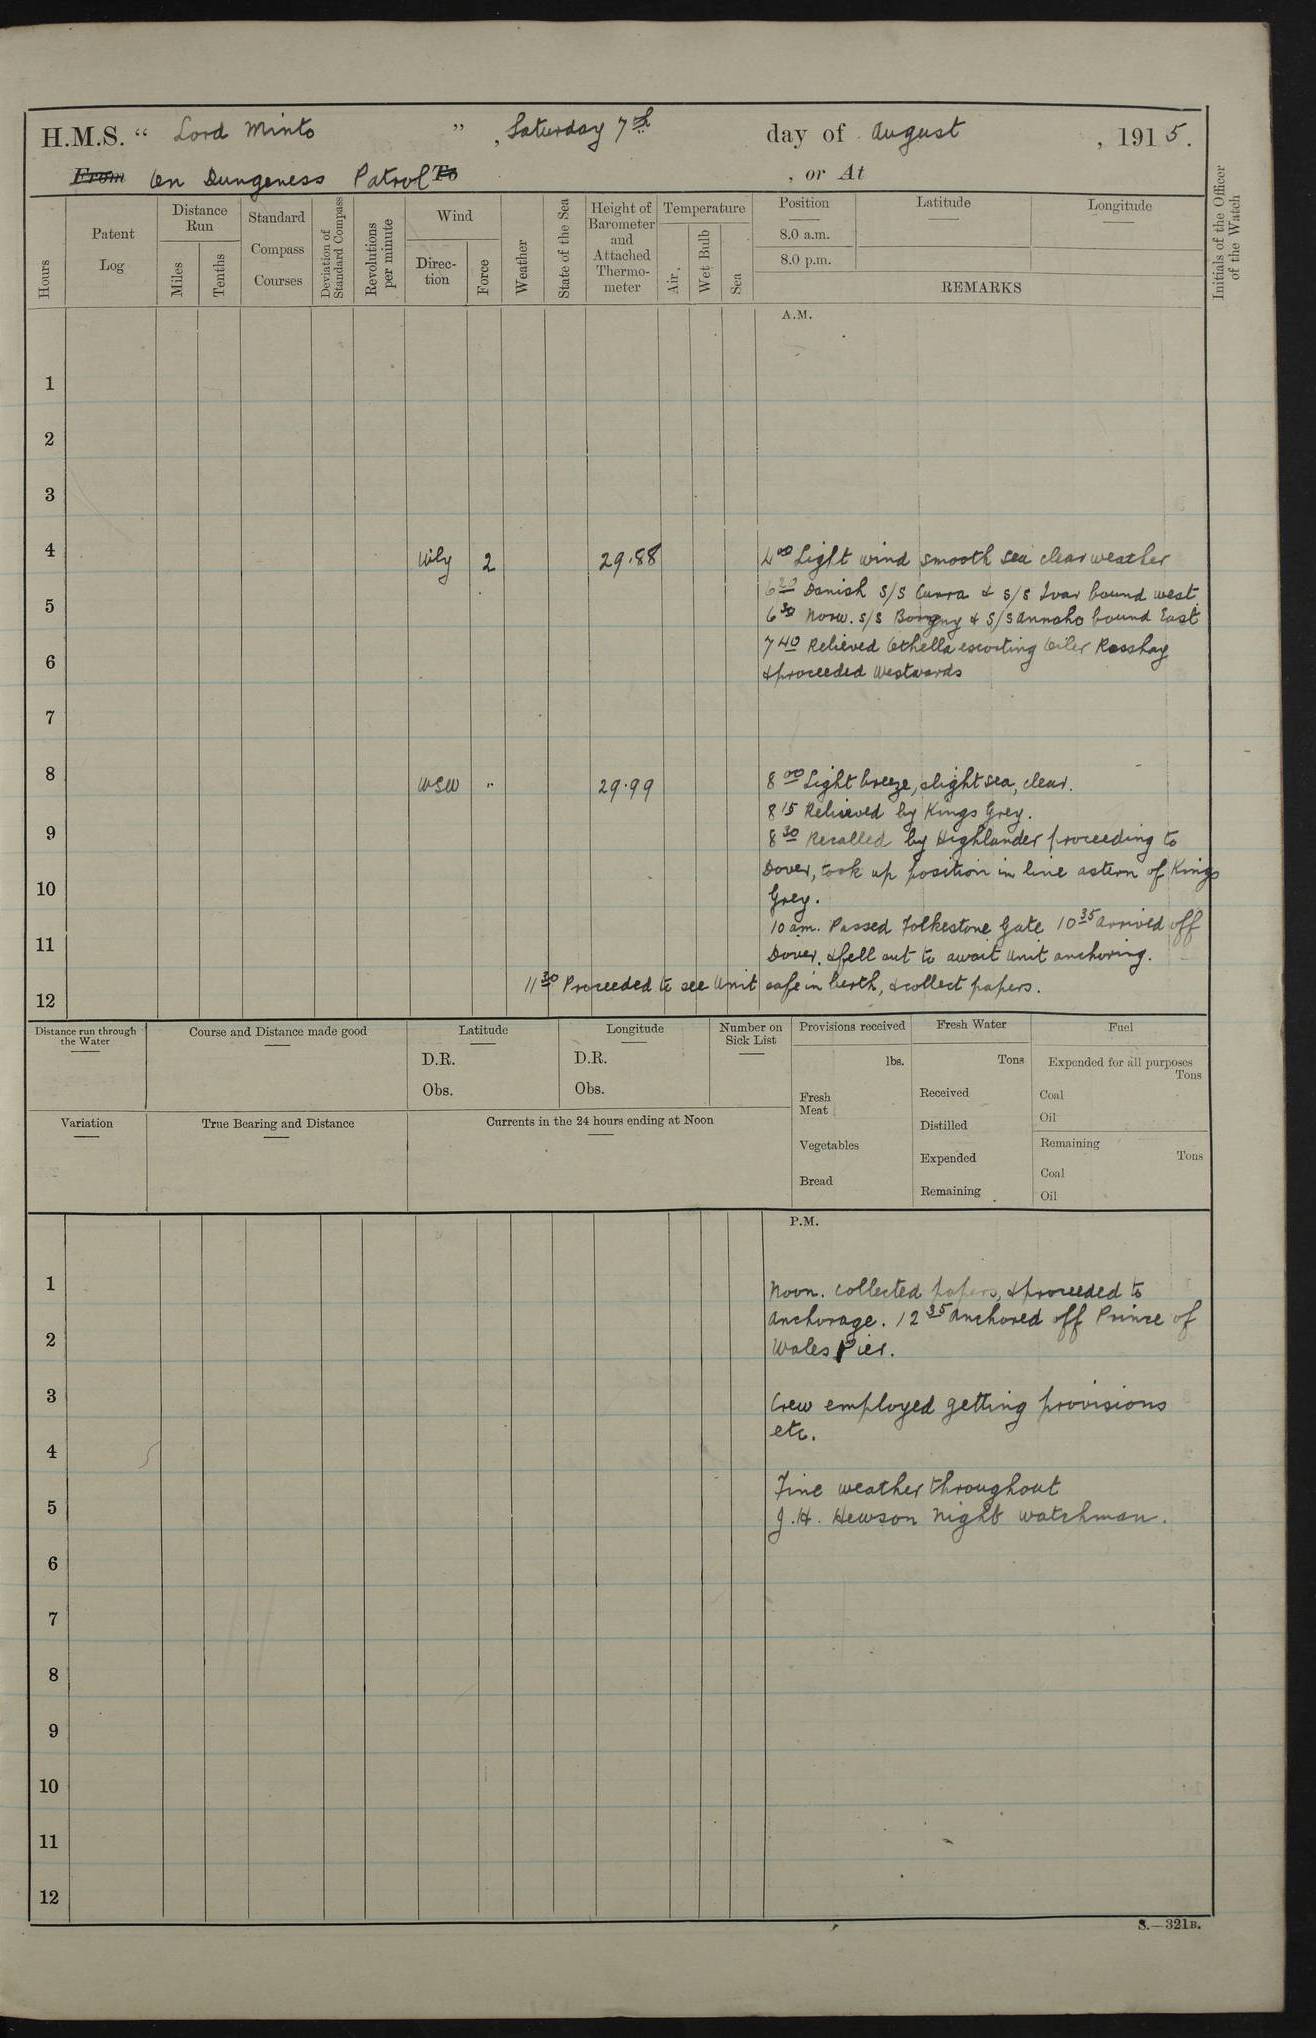 H.M.S. “ Lord Minto ” , Saturday 7th day of August , 1915.
From On Dungeness Patrol To , or At
Hours
Patent Log
Distance Run
Miles
Tenths
Standard Compass Courses
Deviation of Standard Compass
Revolutions per minute
Wind
Direc-tion
Force
Weather
State of the Sea
Height of Barometer and Attached Thermo-meter
Temperature
Air,
Wet Bulb
Sea
Position
8.0 a.m.
8.0 p.m.
Latitude
Longitude
REMARKS
Initials of the Officer of the Watch
A.M.
1
2
3
4 Wly 2 29.88 4 00 Light wind smooth sea clear weather
6 20 Danish S/S Curra & S/S Ivar bound west
5
6 30 Norw. S/S Borgny & S/S Annaho bound East
7 40 Relieved Othella escorting Oiler Rosshay
6
& proceeded Westwards
7
8 WSW " 29.99 8 00 Light breeze, slight sea, clear.
8 15 Relieved by Kings Grey.
9
8 30 Recalled by Highlander proceeding to
Dover, took up position in line astern of Kings
10
Grey.
10 am. Passed Folkestone Gate 10 35 arrived off
11
Dover, & fell out to await Unit anchoring.
11 30 Proceeded to see Unit safe in berth, & collect papers.
12
Distance run through the Water
Course and Distance made good
Latitude
D.R.
Obs.
Longitude
D.R.
Obs.
Number on Sick List
Provisions received
lbs.
Fresh Meat
Vegetables
Bread
Fresh Water
Tons
Received
Distilled
Expended
Remaining
Fuel
Expended for all purposes
Tons
Coal
Oil
Remaining
Tons
Coal
Oil
Variation
True Bearing and Distance
Currents in the 24 hours ending at Noon
P.M.
1
Noon. Collected papers, & proceeded to
anchorage. 12 35 anchored off Prince of
2
Wales Pier.
3
Crew employed getting provisions
etc.
4
Fine weather throughout
5
J.H. Hewson Night watchman.
6
7
8
9
10
11
12
S.—321B.